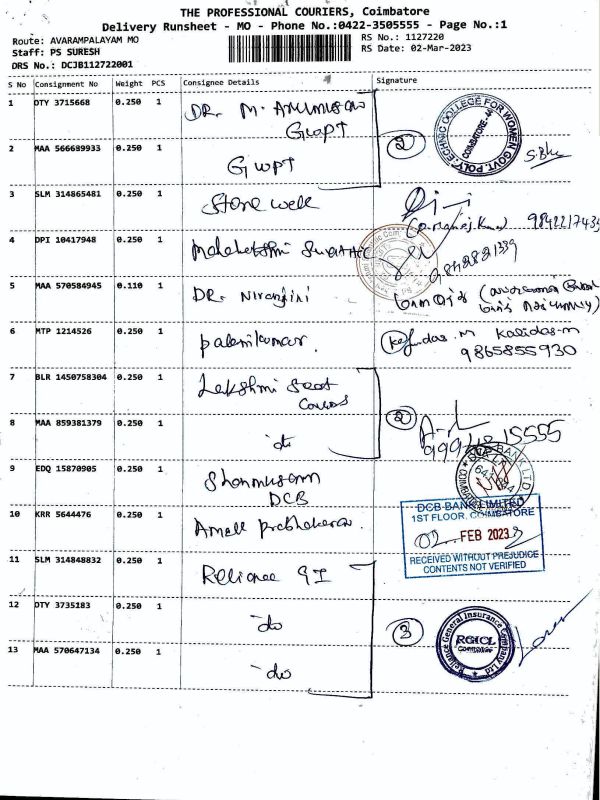 THE PROFESSIONAL COURIERS, Coimbatore
Delivery Runsheet - MO - Phone No.:0422-3505555 - Page No.:1
Route: AVARAMPALAYAM MO
RS No.: 1127220
Staff: PS SURESH
RS Date: 02-Mar-2023
DRS No.: DCJB112722001
S No Consignment No Weight PCS Consignee Details Signature
1 DTY 3715668 0.250 1 DR. M.
2 MAA 566689933 0.250 1
POLY-TECHNIC COLLEGE FOR WOMEN GOVT.
COIMBATORE-44
2
3 SLM 314865481 0.250 1 Stone well
9842217435
4 DPI 10417948 0.250 1 Mahalakshmi
5 MAA 570584945 0.110 1 DR. Niranjini
6 MTP 1214526 0.250 1 palanikumar.
Kalidas-m
9865855930
7 BLR 1450758304 0.250 1 Lakshmi Seat
Covers
8 MAA 859381379 0.250 1 do
2
9 EDQ 15870905 0.250 1 Shanmugam
DCB
10 KRR 5644476 0.250 1 Amall Prabhakaran.
DCB BANK LIMITED
1ST FLOOR, COIMBATORE
02 FEB 2023
RECEIVED WITHOUT PREJUDICE
CONTENTS NOT VERIFIED
11 SLM 314848832 0.250 1 Reliance GI
12 DTY 3735183 0.250 1 do
3
Reliance General Insurance Company Ltd
RGICL
Coimbatore
13 MAA 570647134 0.250 1 do